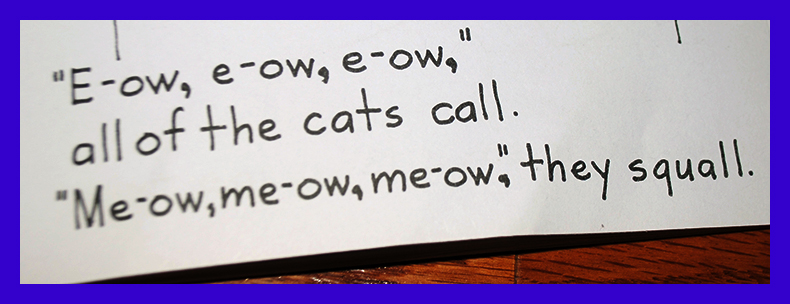 "E-ow, e-ow, e-ow,"
all of the cats call.
"Me-ow, me-ow, me-ow," they squall.